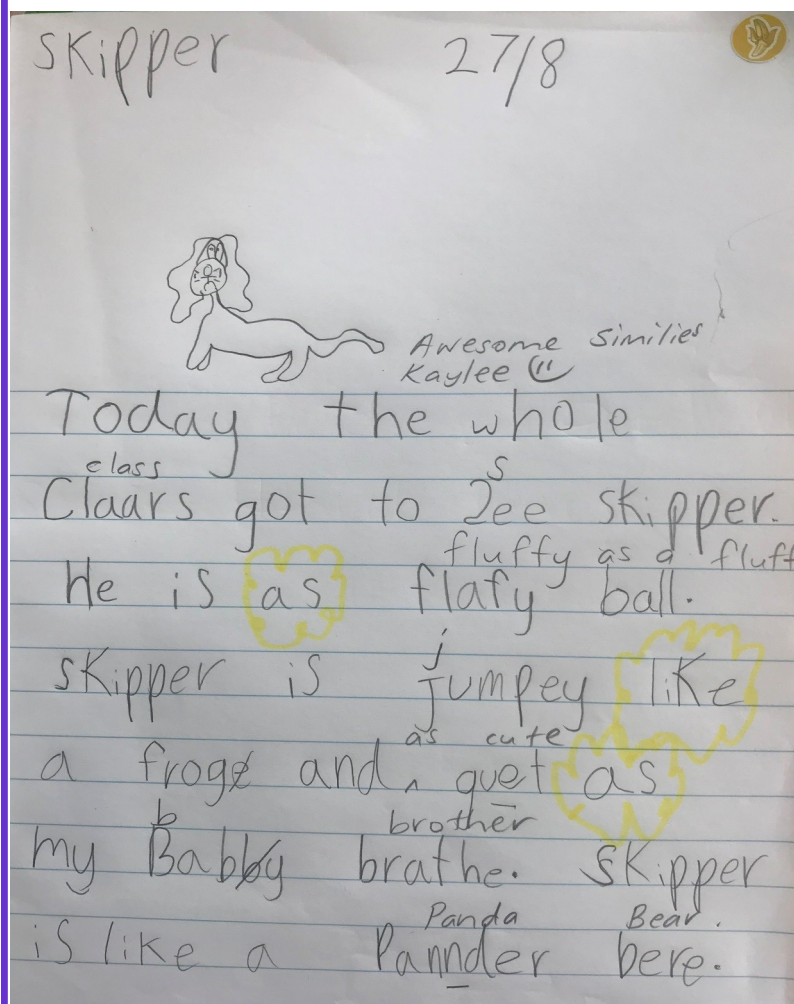 Skipper 27/8
Awesome Similies
Kaylee
Today the whole
class
Claars got to See skipper.
fluffy as a fluff
He is as flafy ball.
j
skipper is jumpey like
as cute
a froge and ^ quet as
b brother
my Babby brathe. Skipper
Panda Bear.
is like a Pannder bere.